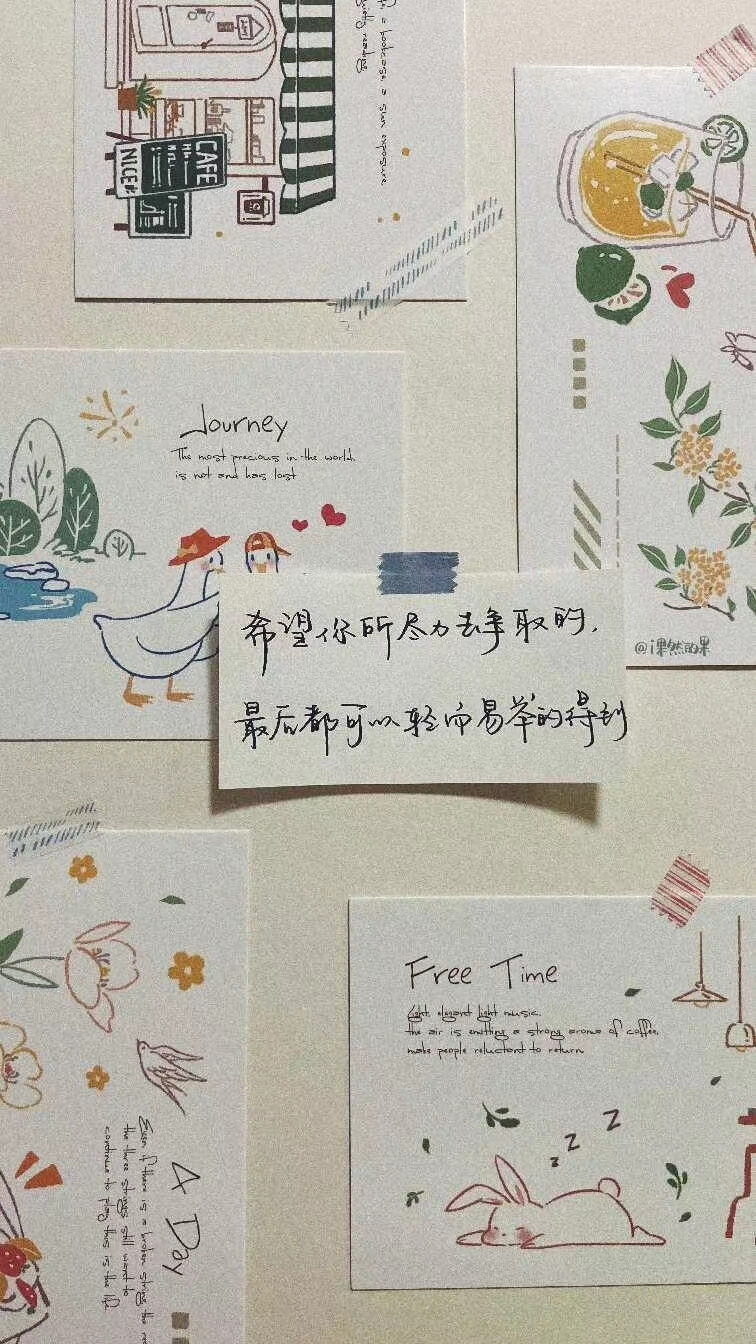 a bookcase, a sun exposure
quietly reading
CAFE
NICE
Journey
The most precious in the world,
is not and has lost
希望你所尽力去争取的,
最后都可以轻而易举的得到
@i果然的果
Free Time
Light, elegant light music,
the air is emitting a strong aroma of coffee,
make people reluctant to return
z z z
A Day
Even if there is a broken string, the
the three strings still want to
continue to play this is the life